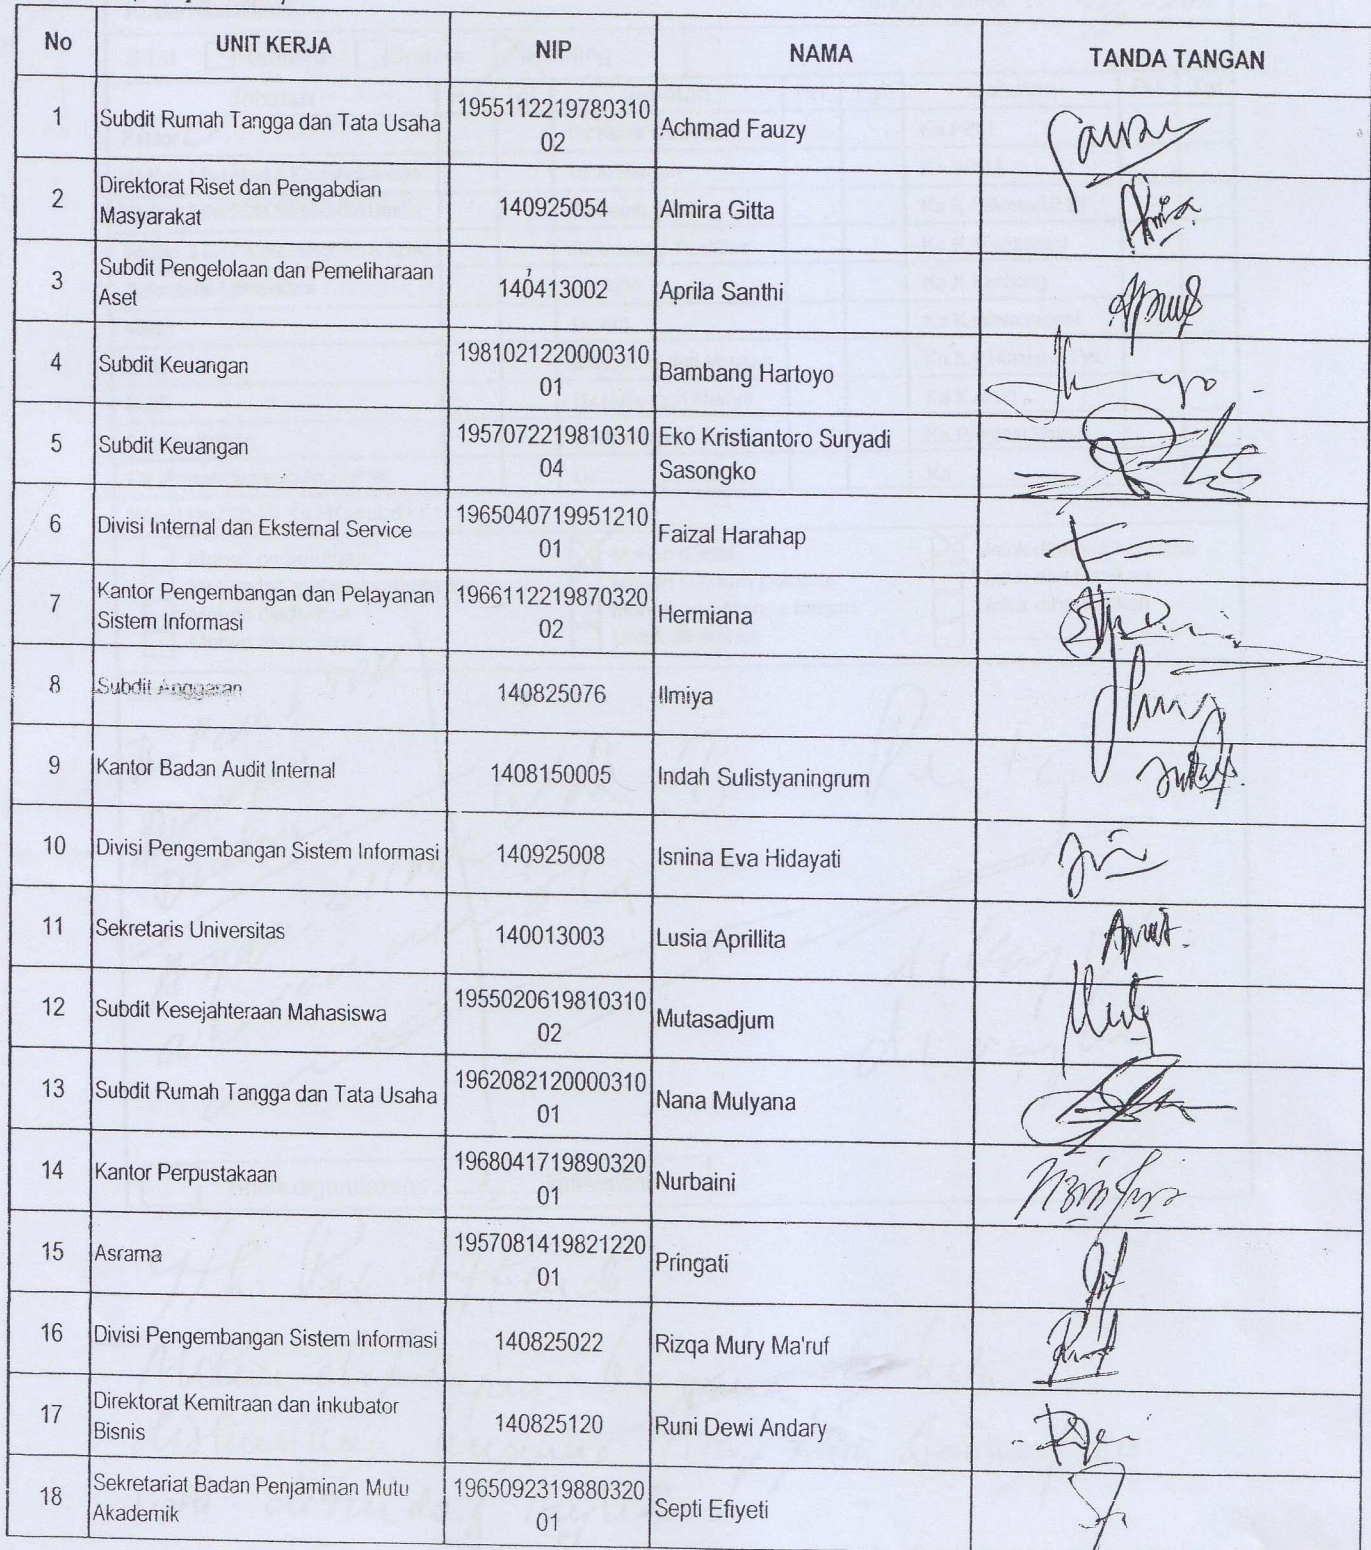 No UNIT KERJA NIP NAMA TANDA TANGAN
1 Subdit Rumah Tangga dan Tata Usaha 1955112219780310 Achmad Fauzy
02
2 Direktorat Riset dan Pengabdian
Masyarakat 140925054 Almira Gitta
3 Subdit Pengelolaan dan Pemeliharaan
Aset 140413002 Aprila Santhi
4 Subdit Keuangan 1981021220000310 Bambang Hartoyo
01
5 Subdit Keuangan 1957072219810310 Eko Kristiantoro Suryadi
04 Sasongko
6 Divisi Internal dan Eksternal Service 1965040719951210 Faizal Harahap
01
7 Kantor Pengembangan dan Pelayanan 1966112219870320 Hermiana
Sistem Informasi 02
8 Subdit Anggaran 140825076 Ilmiya
9 Kantor Badan Audit Internal 1408150005 Indah Sulistyaningrum
10 Divisi Pengembangan Sistem Informasi 140925008 Isnina Eva Hidayati
11 Sekretaris Universitas 140013003 Lusia Aprillita
12 Subdit Kesejahteraan Mahasiswa 1955020619810310 Mutasadjum
02
13 Subdit Rumah Tangga dan Tata Usaha 1962082120000310 Nana Mulyana
01
14 Kantor Perpustakaan 1968041719890320 Nurbaini
01
15 Asrama 1957081419821220 Pringati
01
16 Divisi Pengembangan Sistem Informasi 140825022 Rizqa Mury Ma'ruf
17 Direktorat Kemitraan dan Inkubator
Bisnis 140825120 Runi Dewi Andary
18 Sekretariat Badan Penjaminan Mutu 1965092319880320 Septi Efiyeti
Akademik 01